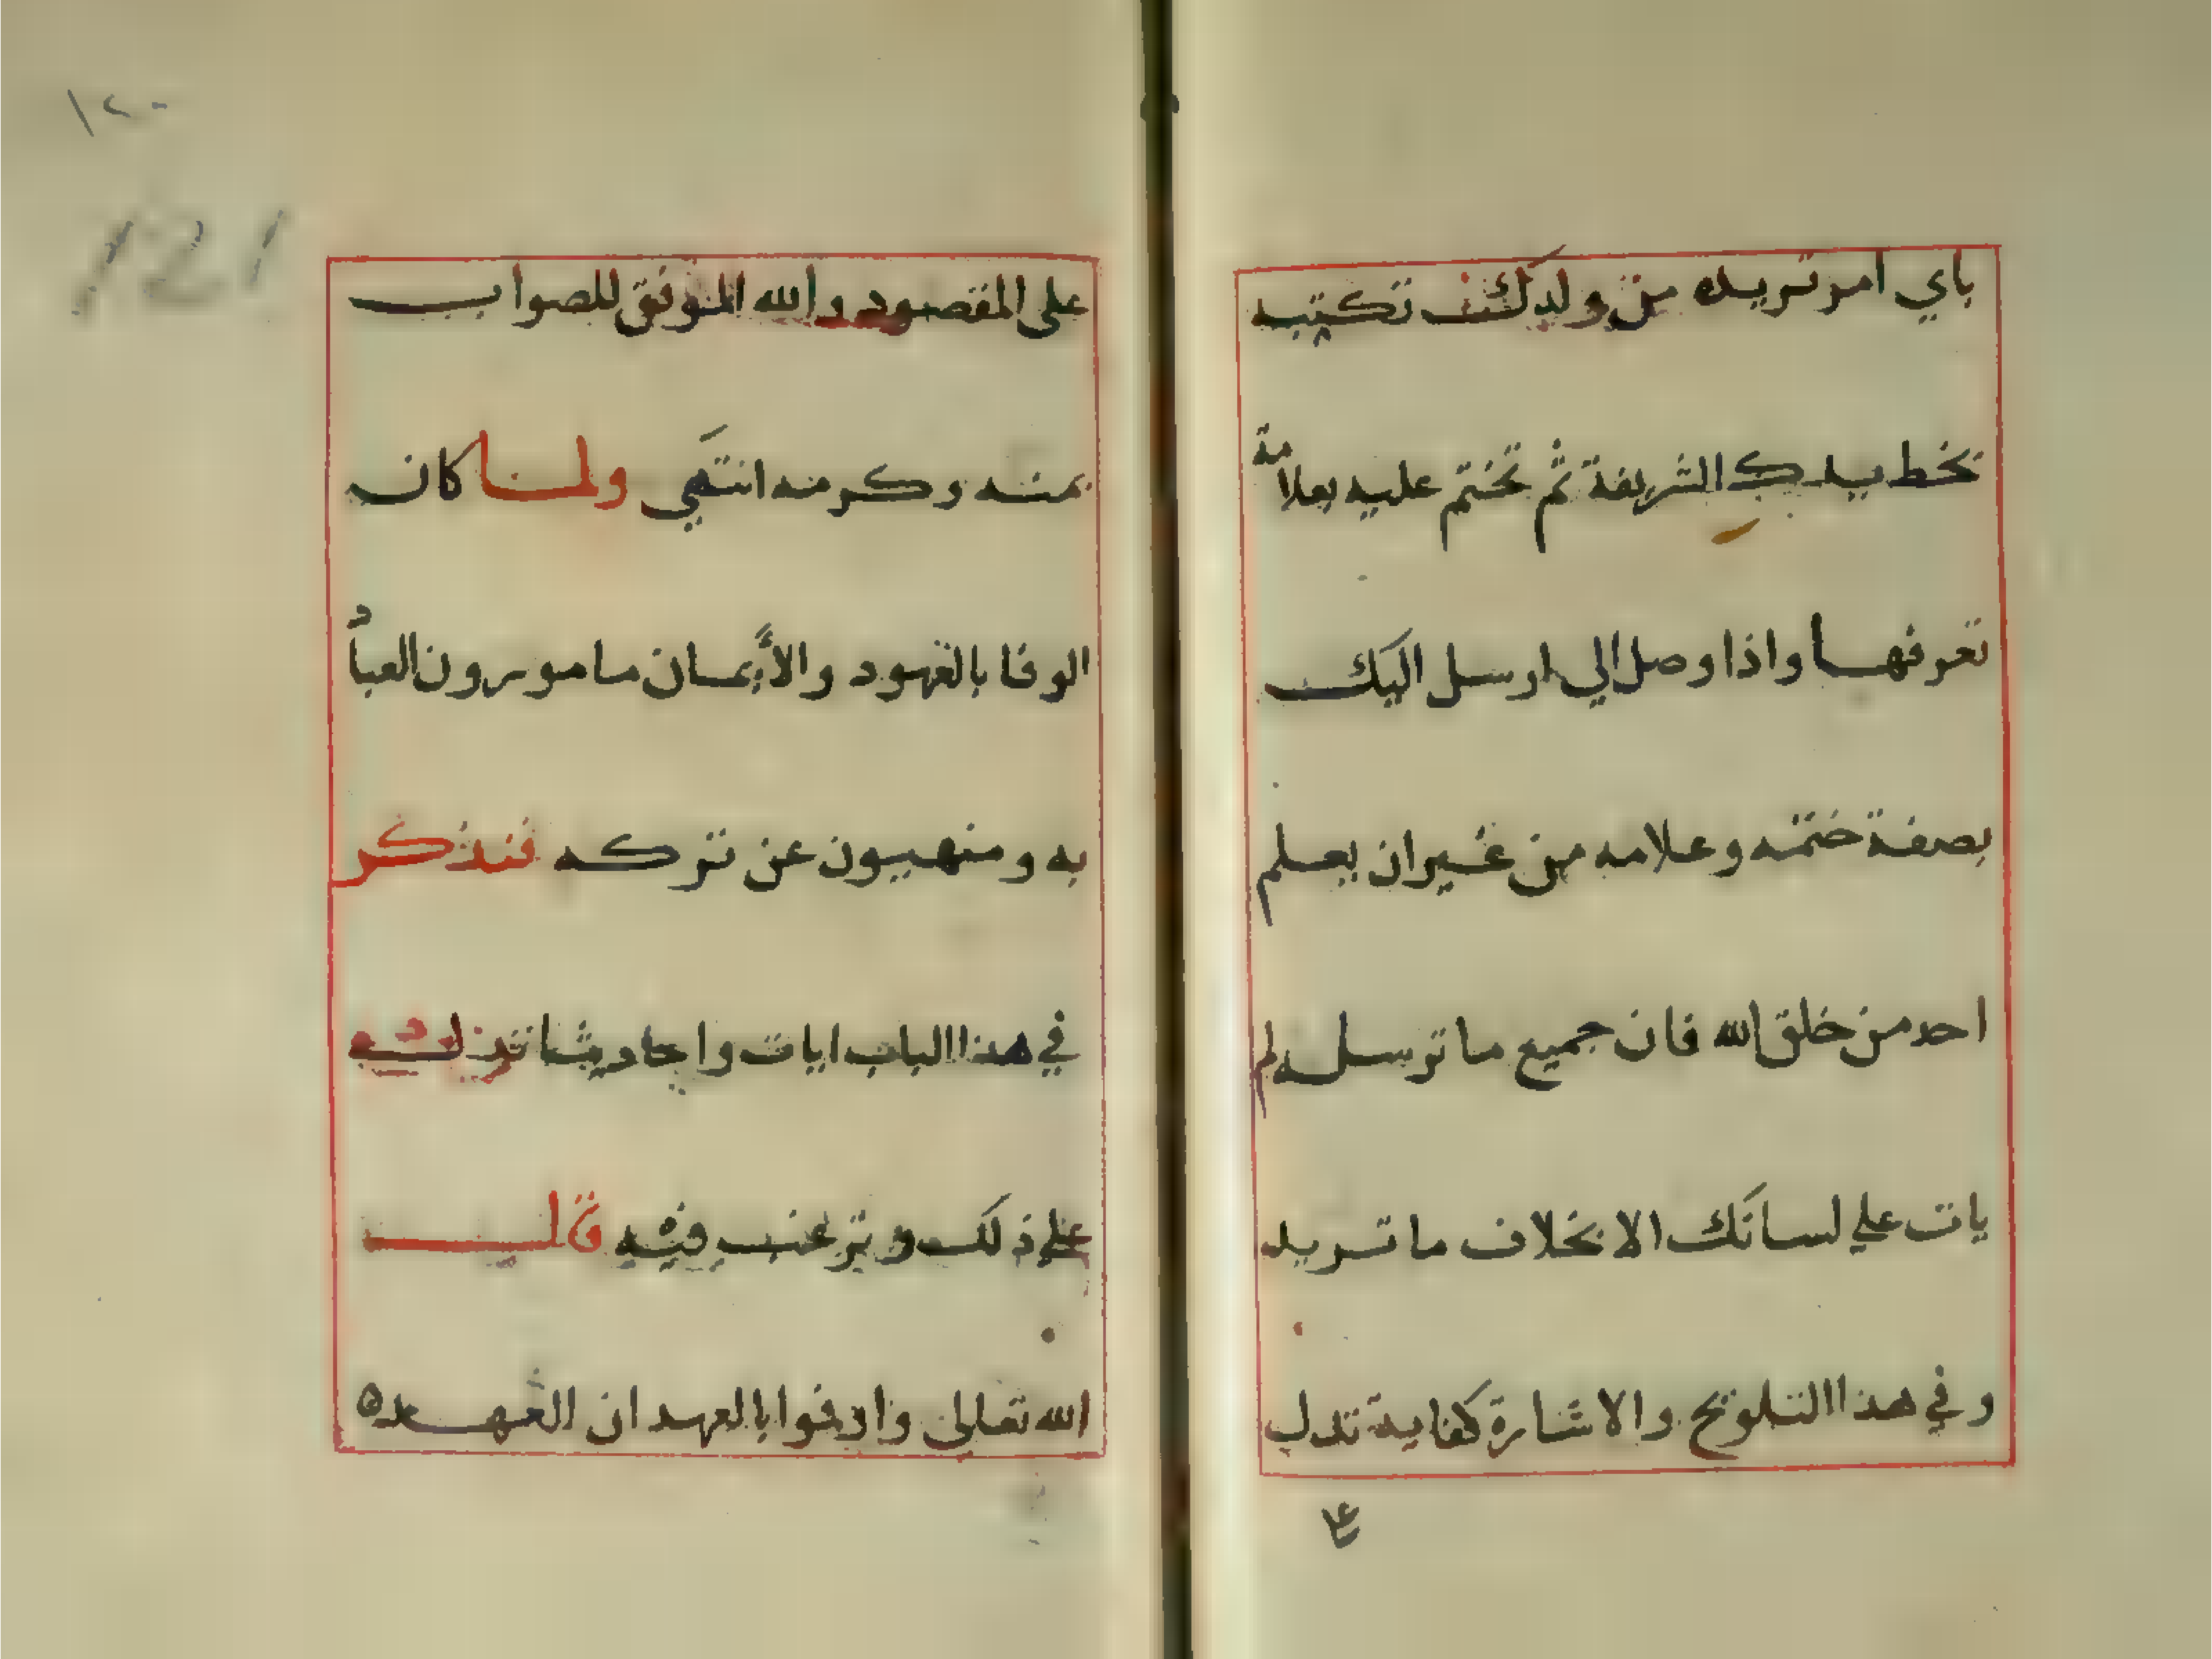 باي امر تريده من ولدك تكتبه
بخط يدك الشريفة ثم تختم عليه بعلامة
تعرفها واذا وصل الي ارسل اليك
بصفة ختمه وعلامه من غيران يعلم
احد من خلق الله فان جميع ما ترسله لم
يات علي لسانك الا بخلاف ما تريد
وفي هذا التلويح والاشارة كفاية تدل
علي
١٢٠
121
على المقصود والله الموفق للصواب
بمنه وكرمه انتهي ولما كان
الوفا بالعهود والأيمان مامورون العباد
به ومنهيون عن تركه فنذكر
في هذا الباب ايات واحاديثا تدل
علي ذلك وترغب فيه قال
الله تعالى واوفوا بالعهد ان العهد